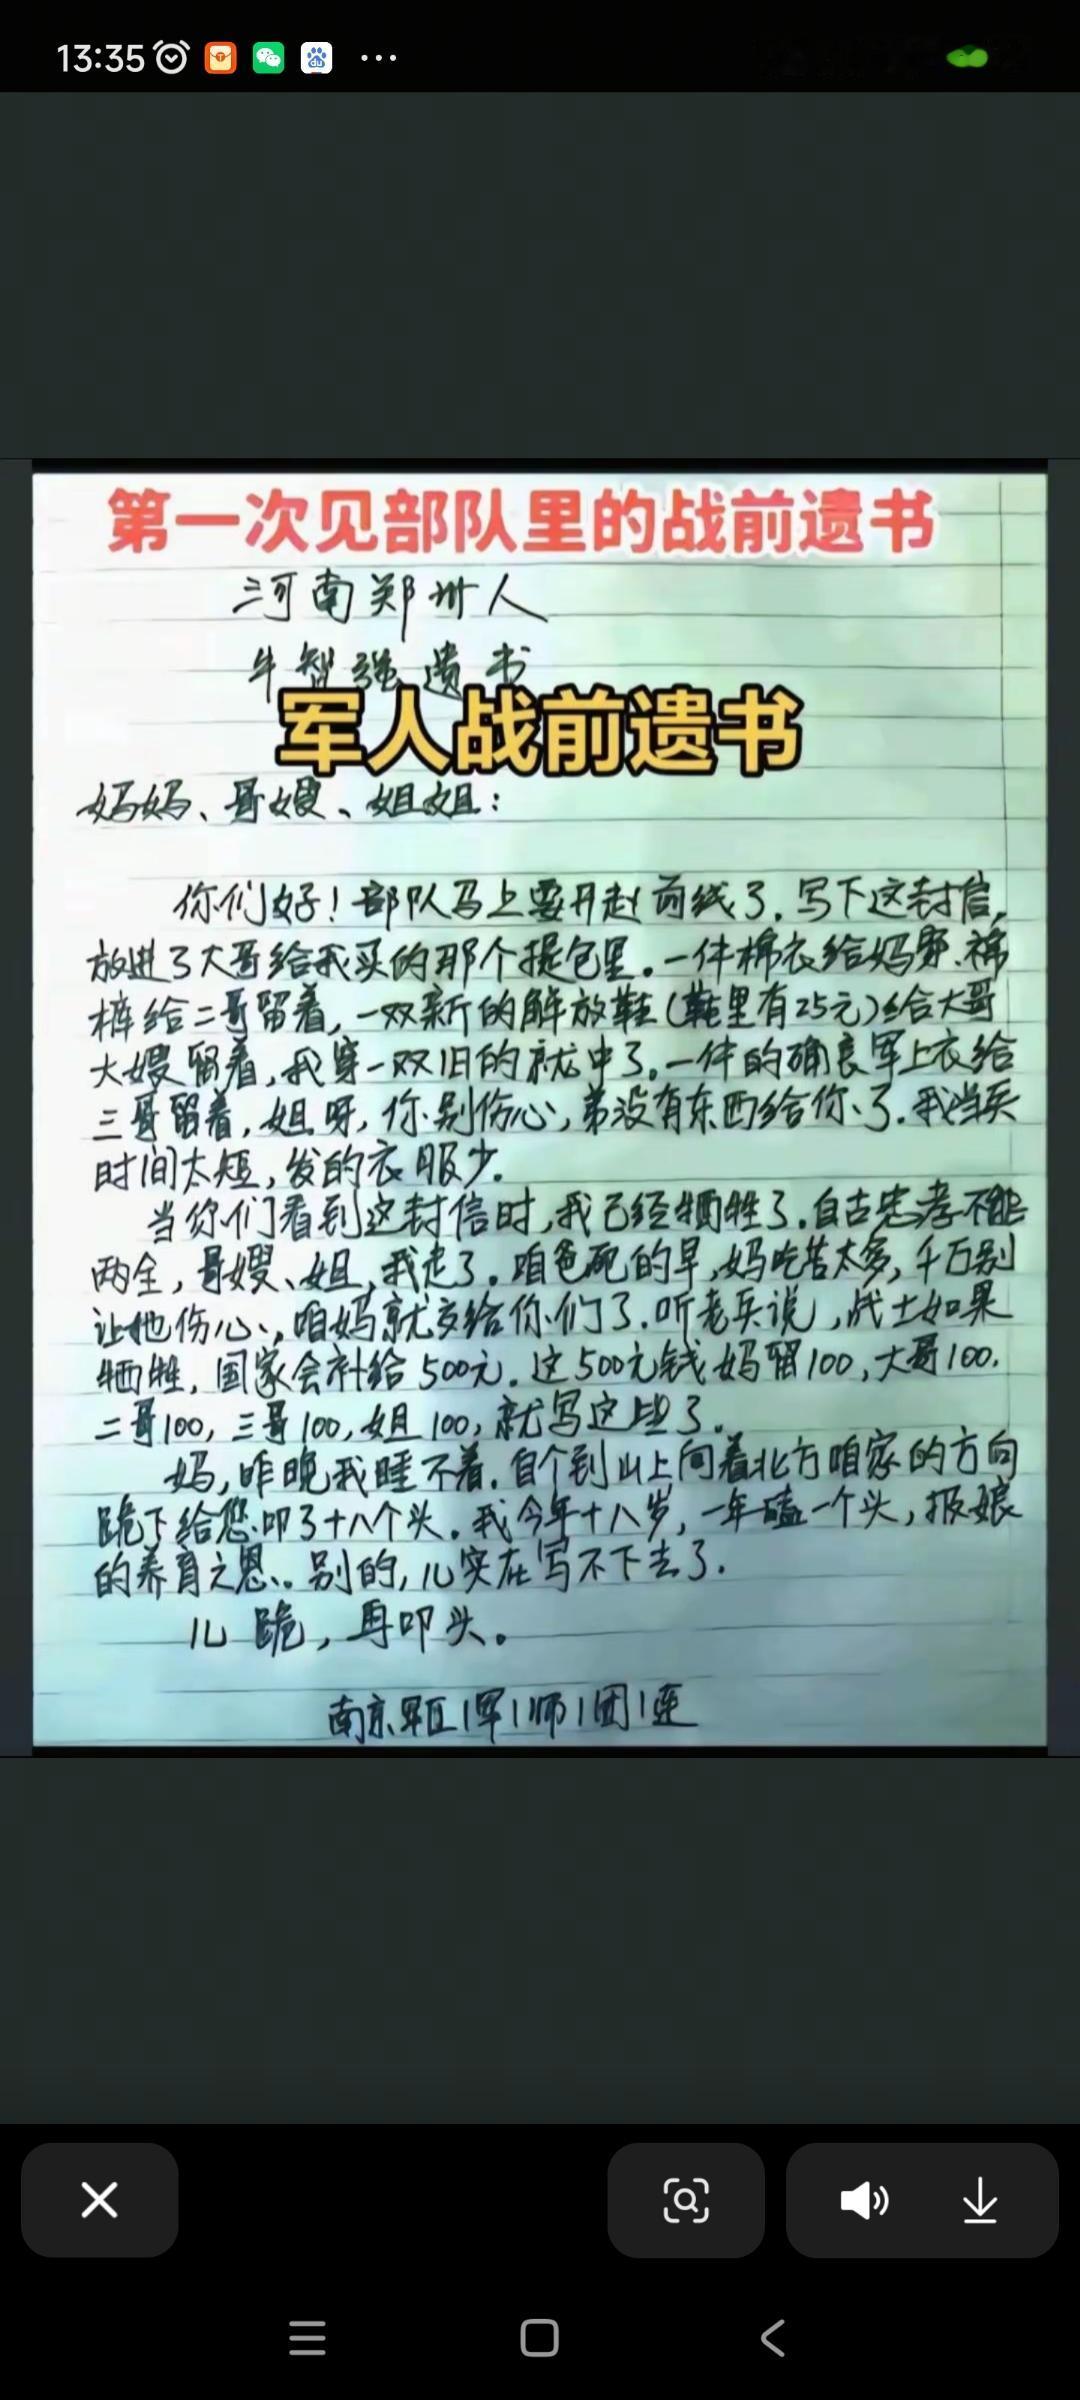 13:35
第一次见部队里的战前遗书
河南郑州人
牛智强遗书
军人战前遗书
妈妈、哥嫂、姐姐:
你们好!部队马上要开赴前线了.写下这封信,
放进了大哥给我买的那个提包里。一件棉衣给妈穿、棉
裤给二哥留着,一双新的解放鞋(鞋里有25元)给大哥
大嫂留着,我穿一双旧的就中了。一件的确良军上衣给
三哥留着,姐呀,你别伤心,弟没有东西给你了.我当兵
时间太短,发的衣服少.
当你们看到这封信时,我已经牺牲了.自古忠孝不能
两全,哥嫂、姐,我走了。咱爸死的早,妈吃苦太多,千万别
让她伤心,咱妈就交给你们了.听老兵说,战士如果
牺牲,国家会补给500元.这500元钱妈留100,大哥100.
二哥100,三哥100,姐100,就写这些了.
妈,昨晚我睡不着.自个到山上向着北方咱家的方向
跪下给您叩了十八个头。我今年十八岁,一年磕一个头,报娘
的养育之恩。别的,儿实在写不下去了.
儿跪,再叩头。
南京军区1军1师1团1连